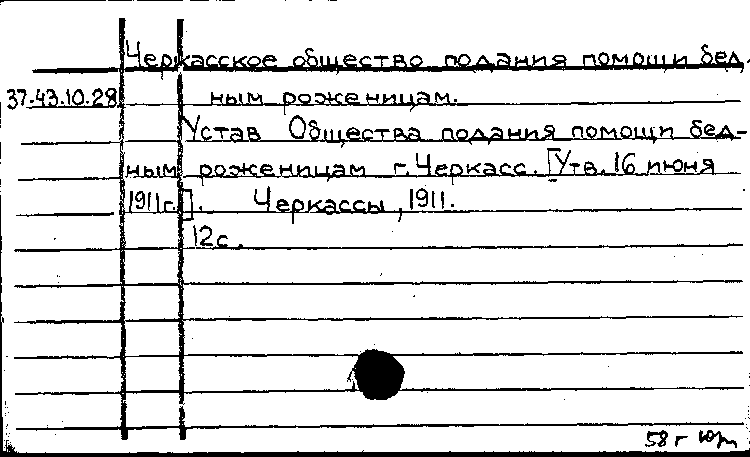 Черкасское общество подания помощи бед-
37-43.10.28 ным роженицам.
Устав Общества подания помощи бед-
ным роженицам г. Черкасс. [Утв. 16 июня
1911г.]. Черкассы, 1911.
12с.
58г